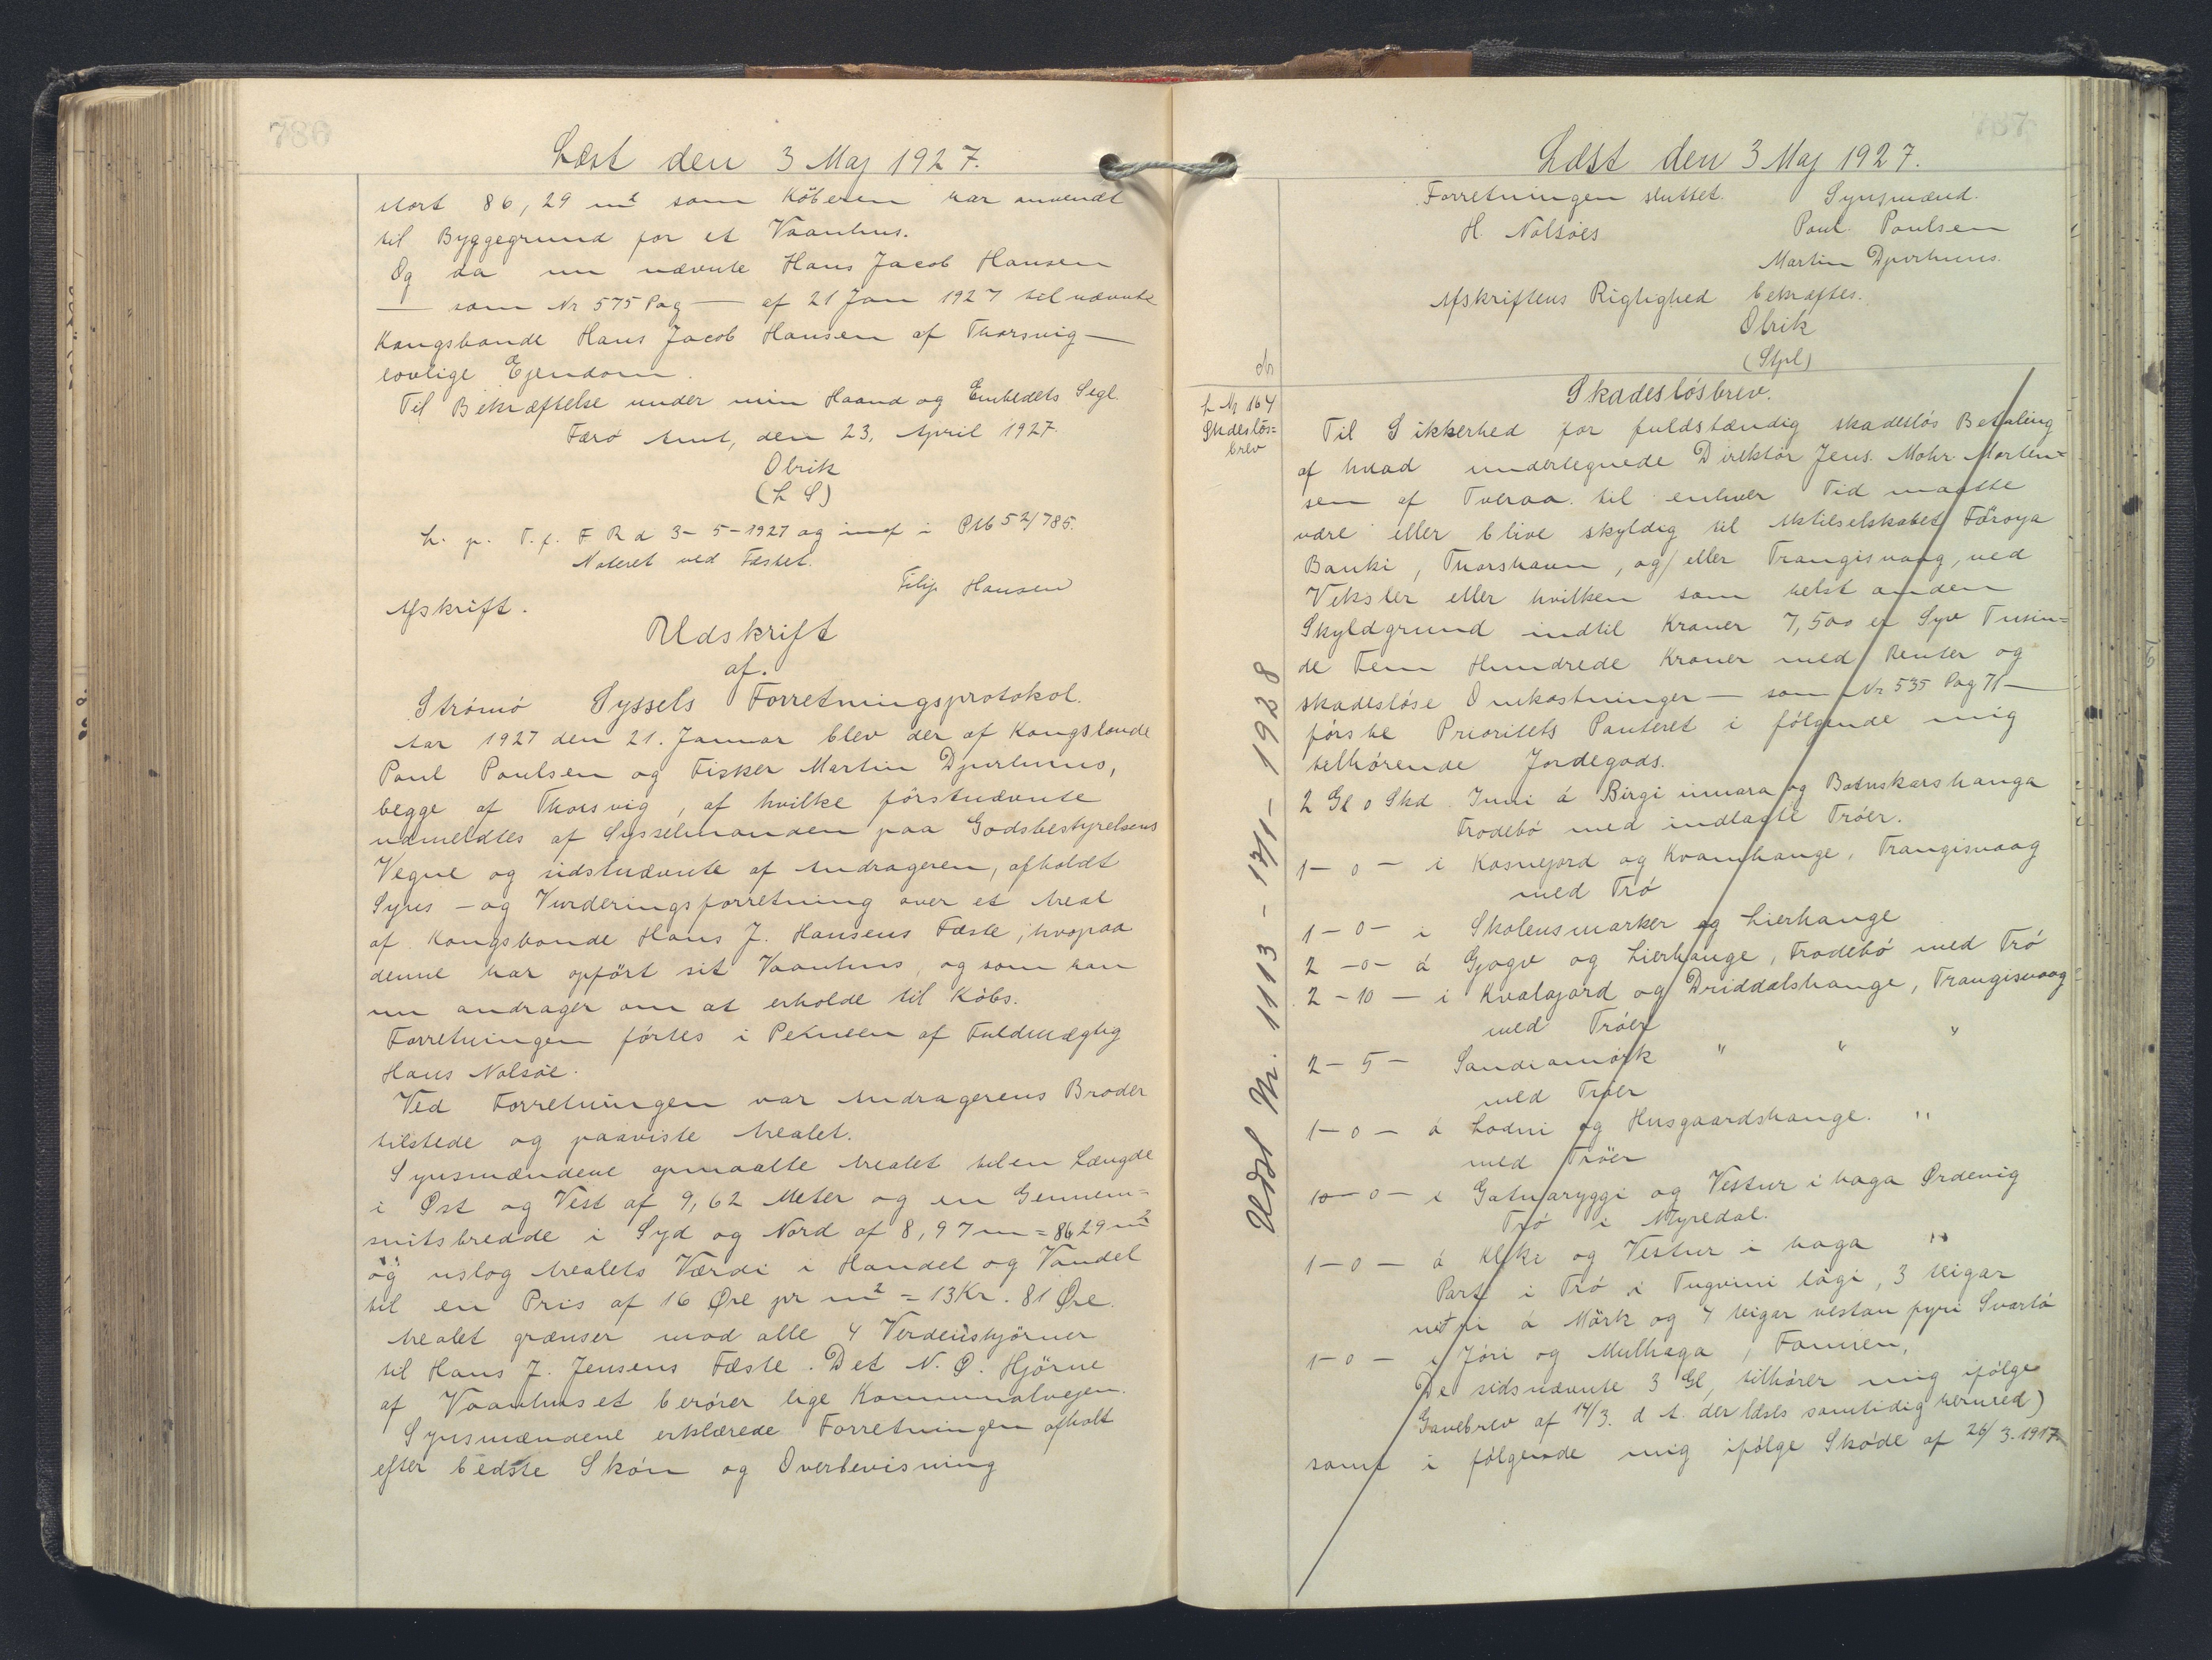 786
Læst den 3 Maj 1927.
stort 86,29 m² som Köberen har anvendt
til Byggegrund for et Vaanhus.
Og da nu nævnte Hans Jacob Hansen
— som Nr 575 Pag — af 21 Jan 1927 til nævnte
Kongsbonde Hans Jacob Hansen af Thorsvig —
lovlige Ejendom.
Til Bekræftelse under min Haand og Embedets Segl.
Færö Amt, den 23. April 1927.
Olrik
(L S)
L. p. T. f. F R d 3-5-1927 og inf i PMb 52/785.
Noteret ved Fæstet.
Filip Hansen
Afskrift.
Udskrift
af.
Strömö Syssels Forretningsprotokol.
Aar 1927 den 21. Januar blev der af Kongsbonde
Poul Poulsen og Fisker Martin Djurhuus,
begge af Thorsvig, af hvilke förstnævnte
udmeldtes af Sysselmanden paa Godsbestyrelsens
Vegne og sidstnævnte af Andrageren, afholdt
Syns- og Vurderingsforretning over et Areal
af Kongsbonde Hans J. Hansens Fæste, hvopaa
denne har opfört sit Vaanhus, og som han
nu andrager om at erholde til Köbs.
Forretningen förtes i Pennen af Fuldmægtig
Hans Nolsöe.
Ved Forretningen var Andragerens Broder
tilstede og paaviste Arealet.
Synsmændene opmaalte Arealet til en Længde
i Øst og Vest af 9,62 Meter og en Gennem=
snitsbredde i Syd og Nord af 8,97 m = 86 29 m²
og uslog Arealets Værdi i Handel og Vandel
til en Pris af 16 Øre pr m² = 13 Kr. 81 Øre.
Arealet grænser mod alle 4 Verdenshjörner
til Hans J. Jensens Fæste. Det N. Ø. Hjörne
af Vaanhuset berörer lige Kommunalvejen.
Synsmændene erklærede Forretningen afholt
efter bedste Skön og Overbevisning
787
Læst den 3 Maj 1927.
Forretningen sluttet. Synsmænd.
H. Nolsöes Poul Poulsen
Martin Djurhuus.
Afskriftens Rigtighed bekræftes.
Olrik
(Stpl)
L Nr 164
Skadeslös=
brev
Skadeslösbrev.
Til Sikkerhed for fuldstændig skadeslös Betaling
af hvad undertegnede Direktör Jens Mohr Morten=
sen af Tveraa til enhver Tid maatte
være eller blive skyldig til Aktieselskabet Föroya
Banki, Thorshavn, og/eller Trangisvaag, ved
Veksler eller hvilken som helst anden
Skyldgrund indtil Kroner 7,500 er Syv Tusin=
de Fem Hundrede Kroner med Renter og
skadeslöse Omkostninger — som Nr 535 Pag 71 —
förste Prioritets Panteret i fölgende mig
tilhörende Jordegods.
2 Gl 0 Skd Inni á Birgi innara og Botnskarshanga
Frodebö med indlagte Tröer.
1 - 0 - i Kosnejord og Kvamhange, Trangisvaag
med Trö
1 - 0 - i Skolensmarker og Lierhange
2 - 0 - á Gjogv og Lierhange, Frodebö med Trö
2 - 10 - i Kvalajord og Driddalshange, Trangisvaag
med Tröer
2 - 5 - Sandiamörk " " "
med Tröer
1 - 0 - á Lodni og Husgaardshange. "
med Tröer
10 - 0 - i Gatnaryggi og Vestur i haga Ørdevig
Trö i Myredal.
1 - 0 - á Kliki og Vestur i haga "
Part i Trö i Tugvini lögi, 3 teigar
á Mörk og 7 teigar vestan fyri Svartá
1 - 0 - i Jöri og Mulhaga, Famien,
De sidsnævnte 3 Gl, tilhörer mig ifölge
Gavebrev af 14/3. d A. der læses samtidig hermed)
samt i fölgende mig ifölge Sköde af 26/3.1917
Udsl Nr. 1113 - 17/11 - 1928